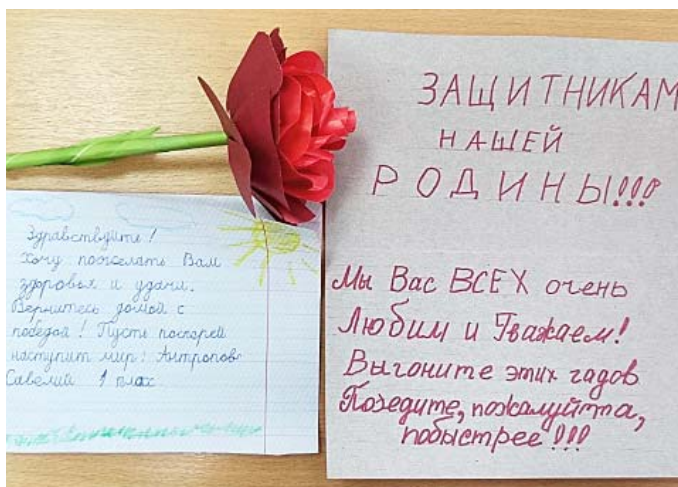 Здравствуйте!
Хочу пожелать Вам
здоровья и удачи.
Вернитесь домой с
победой! Пусть поскорей
наступит мир! Антропов
Савелий 1 плас
ЗАЩИТНИКАМ
НАШЕЙ
РОДИНЫ!!!
Мы Вас ВСЕХ очень
Любим и Уважаем!
Выгоните этих гадов.
Победите, пожалуйста,
побыстрее!!!